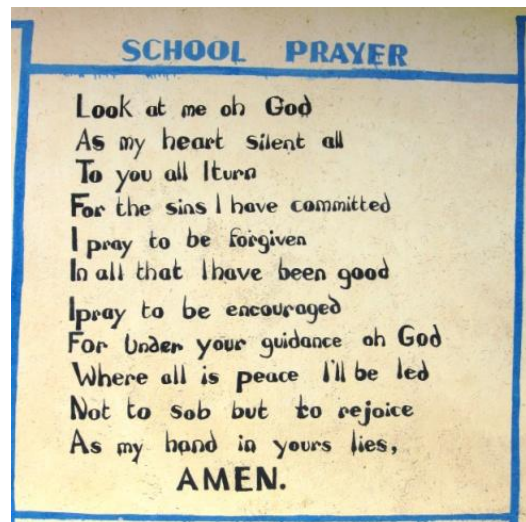 SCHOOL PRAYER
Look at me oh God
As my heart silent all
To you all I turn
For the sins I have committed
I pray to be forgiven
In all that I have been good
I pray to be encouraged
For Under your guidance oh God
Where all is peace I'll be led
Not to sob but to rejoice
As my hand in yours lies,
AMEN.